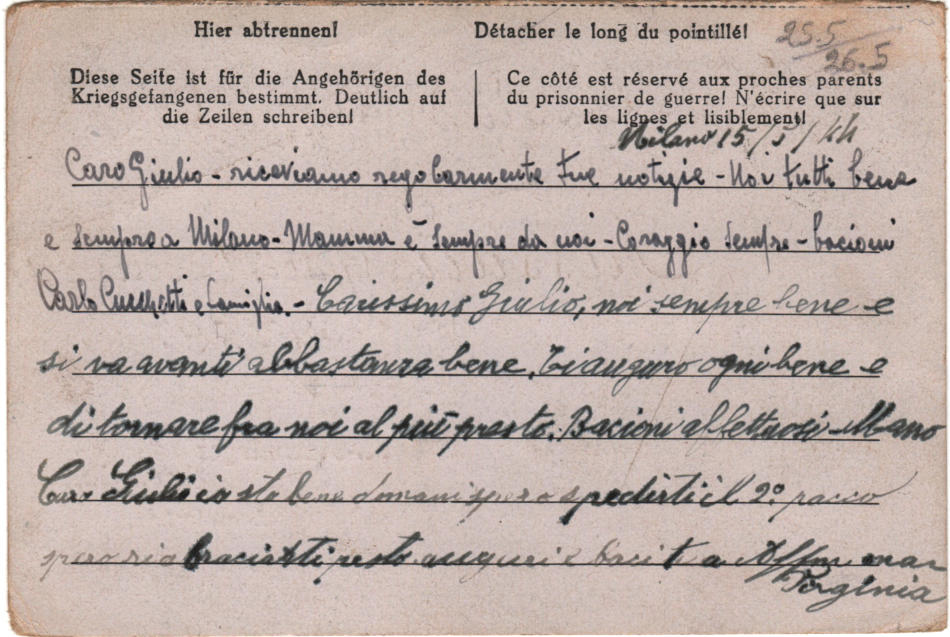 Hier abtrennen!
Détacher le long du pointillé!
25.5
26.5
Diese Seite ist für die Angehörigen des
Kriegsgefangenen bestimmt. Deutlich auf
die Zeilen schreiben!
Ce côté est réservé aux proches parents
du prisonnier de guerre! N'écrire que sur
les lignes et lisiblement!
Milano 15/5/44
Caro Giulio - riceviamo regolarmente tue notizie - Noi tutti bene
e sempre a Milano - Mamma è sempre da noi - Coraggio sempre - bacioni
Carlo e famiglia. - Carissimo Giulio, noi sempre bene e
si va avanti abbastanza bene. Ti auguro ogni bene e
di tornare fra noi al più presto. Bacioni affettuosi
Caro Giulio io sto bene domani spero spedirti il 2º pacco
presto auguri e baci tua Affm
Virginia